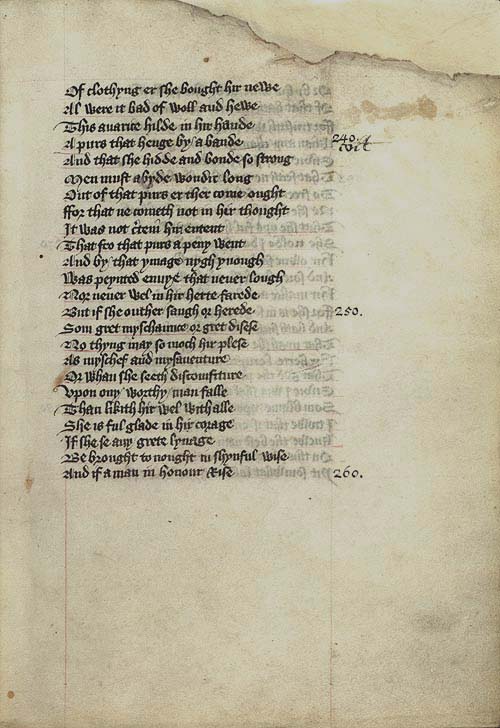 Of clothyng er she bought hir newe
Al were it bad of woll and hewe
This avarice hilde in hir hande
A purs that henge by a bande
240.
And that she hidde and bonde so strong
Men must abyde wondir long
Out of that purs er ther come ought
ffor that ne cometh not in hir thought
It was not certein hir entent
That fro that purs a peny went
And by that ymage nygh ynough
Was peynted envye that never lough
Nor never wel in hir herte farede
But if she outher saugh or herede
250.
Som gret myschaunce or gret disese
No thyng may so moch hir plese
As myschef and mysaventure
Or whan she seeth discomfiture
Vpon ony worthy man falle
Than likith hir wel with alle
She is ful glade in hir corage
If she se any grete lynage
Be brought to nought in shynful wise
And if a man in honour Rise
260.